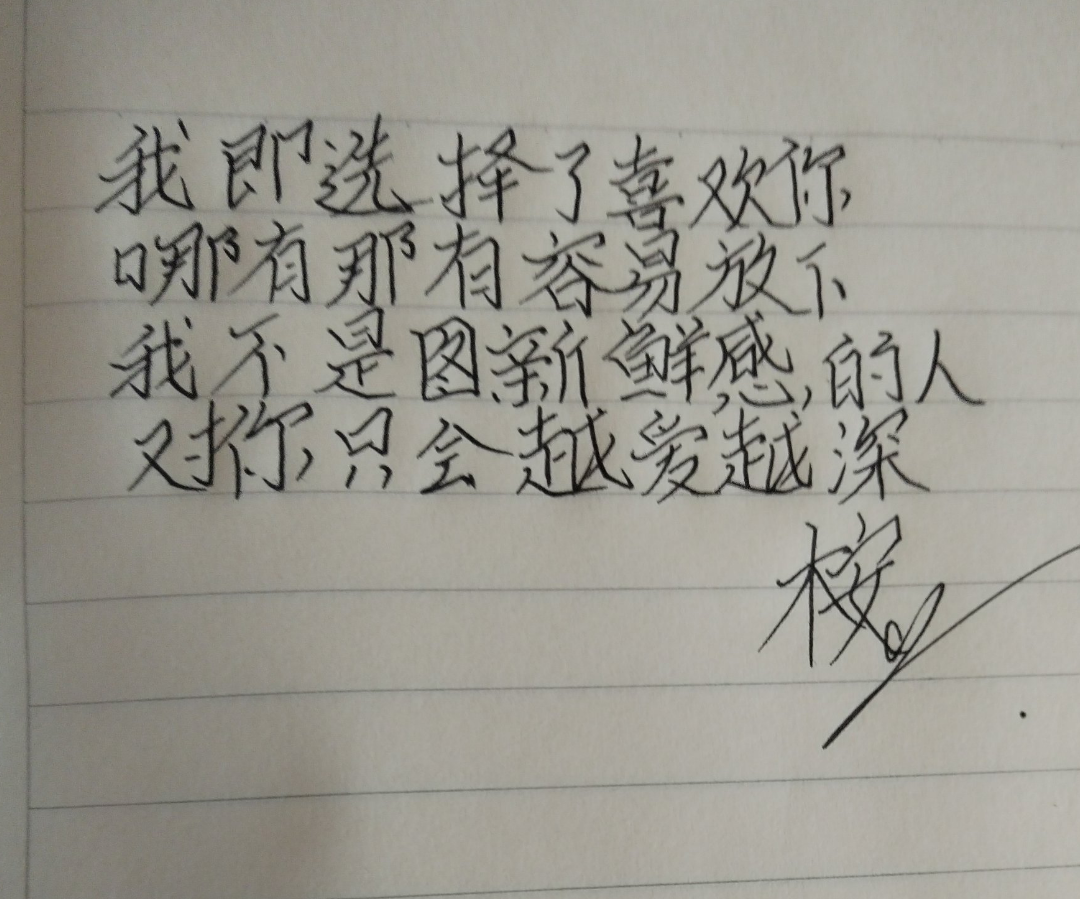 我即选择了喜欢你
哪有那有容易放下
我不是图新鲜感的人
对你只会越爱越深
桉